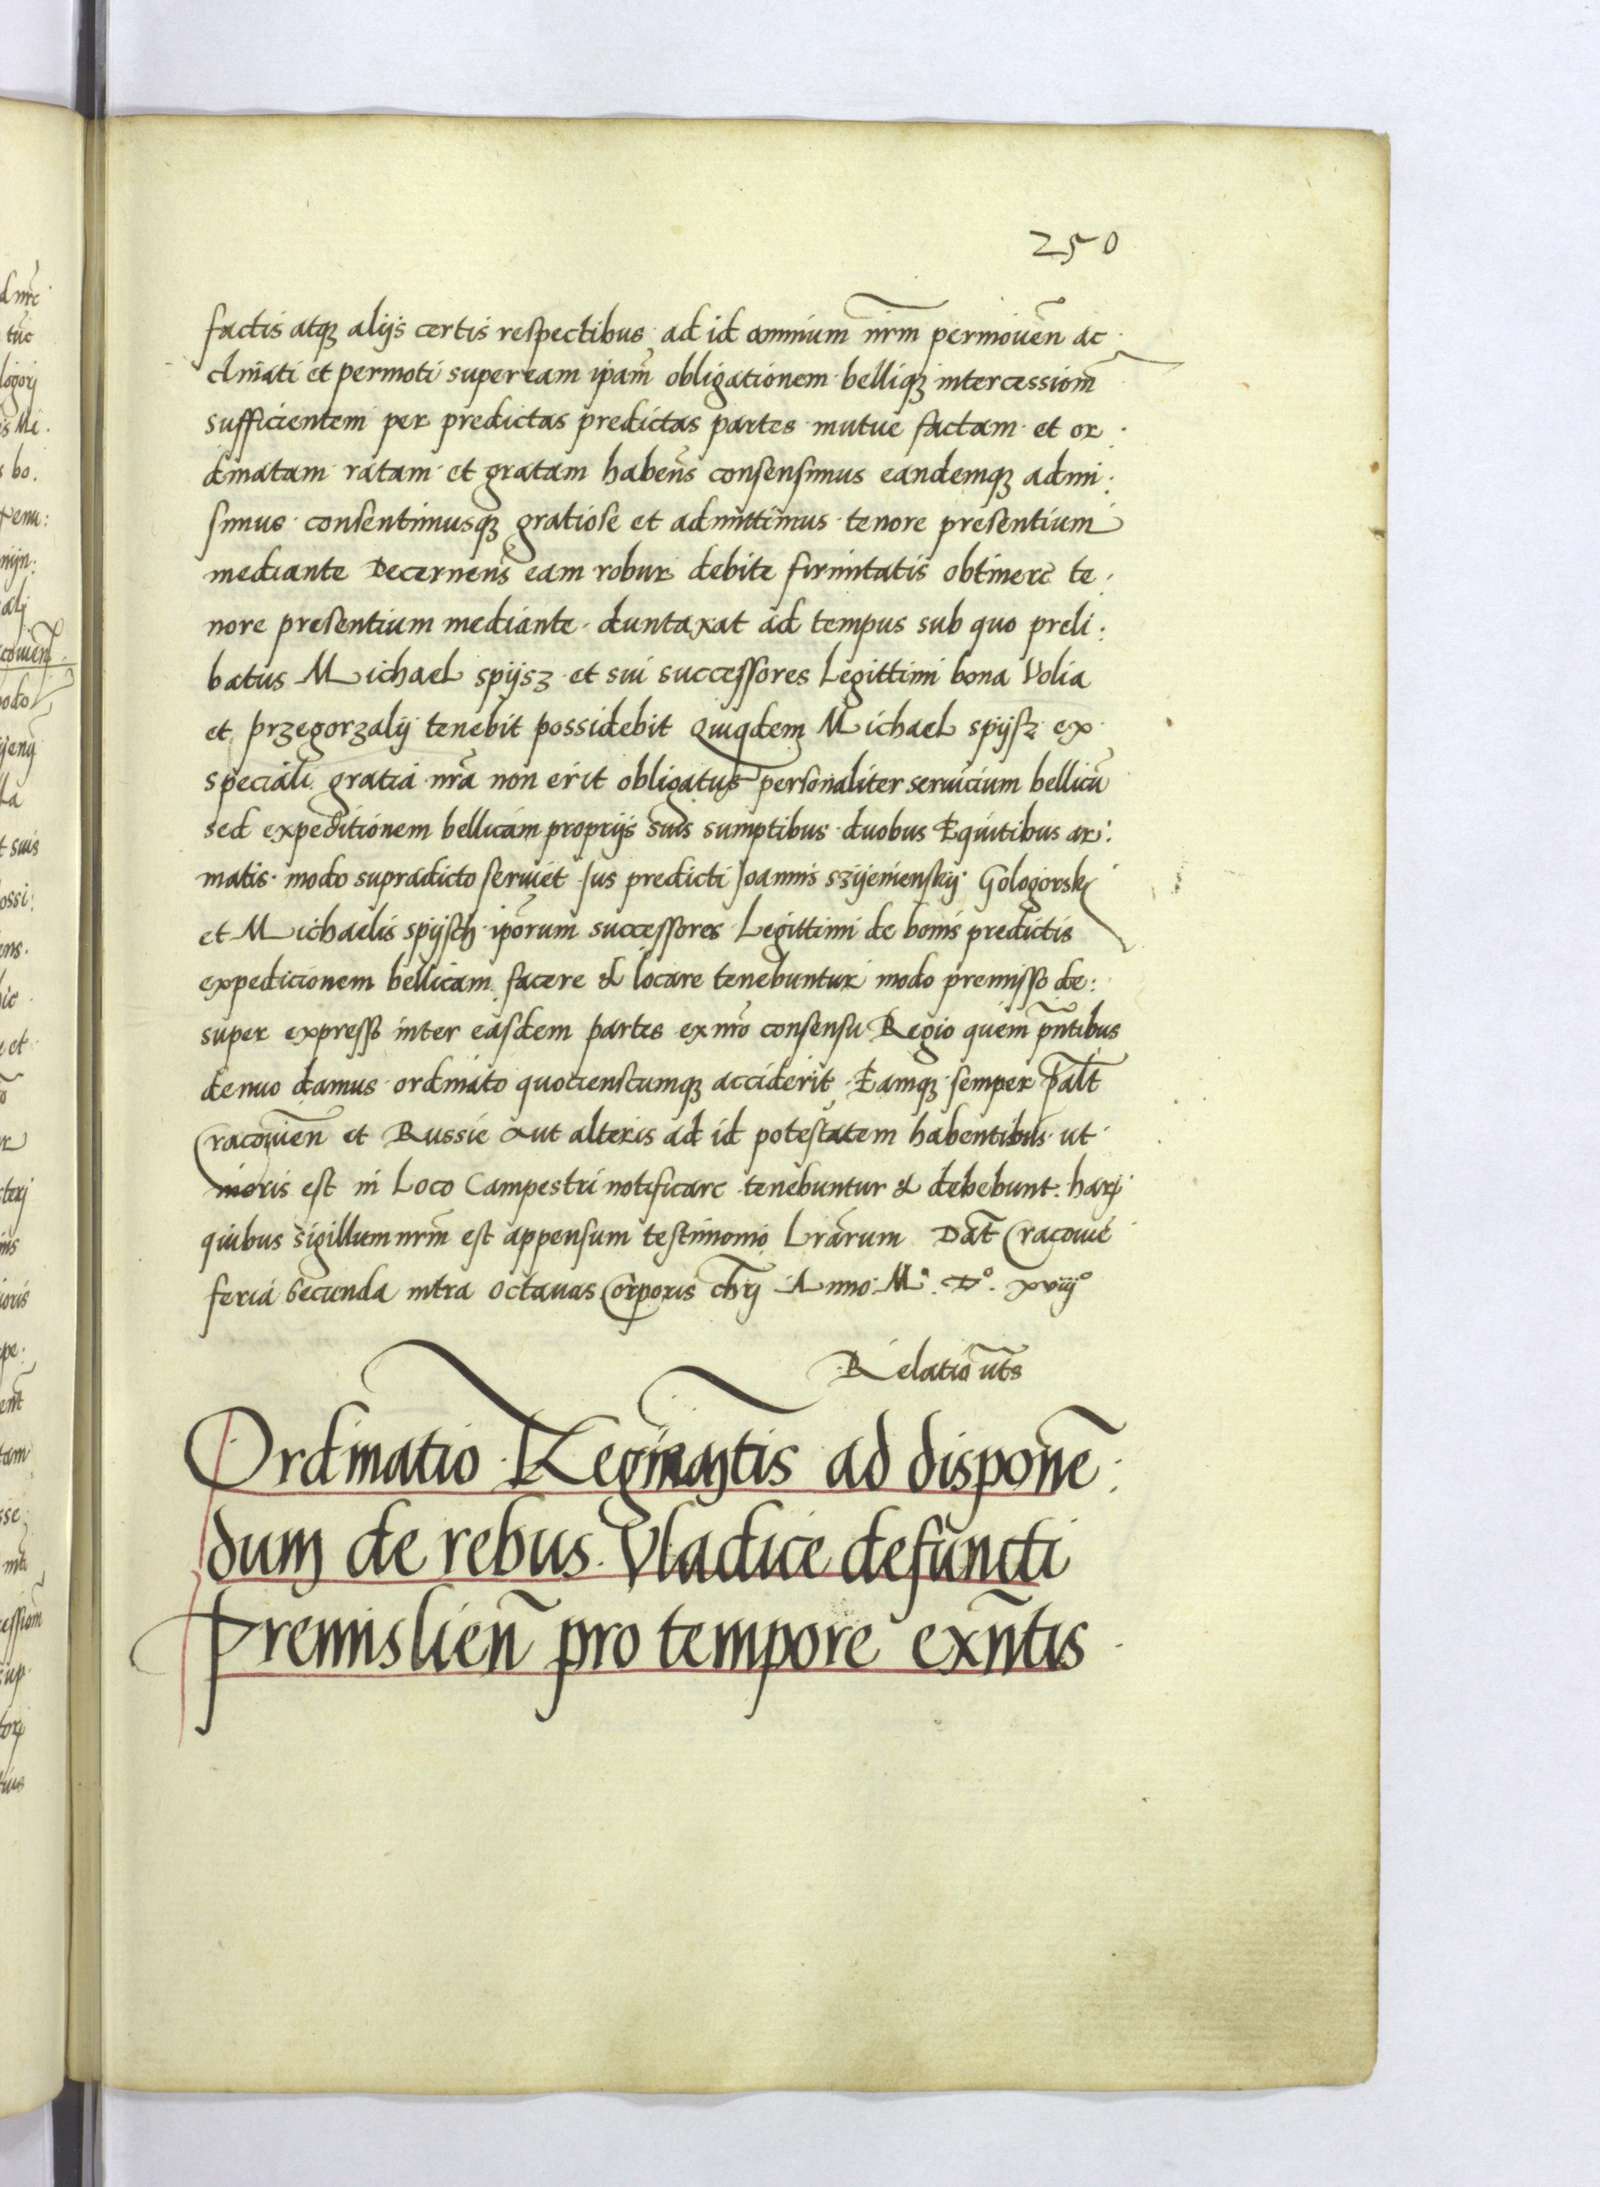 250
factis atq3 alijs certis respectibus ad id omnium nrm̄ permouen̄ ac
clinati et permoti super eam ipam̄ obligationem belliq3 intercessiom̄
sufficientem per predictas predictas partes mutue factam et or
dinatam ratam et gratam haben̄s consensimus eandemq3 admi:
simus consentimusq3 gratiose et admittimus tenore presentium
mediante Decernen̄s eam robur debite firmitatis obtinere te
nore presentium mediante duntaxat ad tempus sub quo preli:
batus Michael spijsz et sui successores Legittimi bona Volia
et przegorzalij tenebit possidebit Quiqdem Michael spijsz ex
speciali gratia nr̄a non erit obligatus personaliter seruicium bellicū
sed expeditionem bellicam proprijs suis sumptibus duobus Equitibus ar:
matis modo supradicto seruiet Jus predicti Joannis szijemenskij Gologorskj
et Michaelis spijsch ipōrum successores Legittimi de bonis predictis
expedicionem bellicam facere & locare tenebuntur modo premisso de:
super expresso inter easdem partes ex nrō consensu Regio quem pn̄tibus
denuo damus ordinato quocienscumq3 acciderit Eamq3 semper Palt̄
Cracouien̄ et Russie aut alteris ad id potestatem habentibus ut
moris est in Loco Campestri notificare tenebuntur & debebunt harj
quibus sigillum nrm̄ est appensum testimonio Lrārum Dat̄ Cracouie
feria Secunda intra octauas Corporis chrj̄ Anno Mº Dº xviijº
Relatio ut̄s
Ordinatio Regina̅tis ad disponē:
dum de rebus Vladice defuncti
Premislien̄ pro tempore exn̄tis